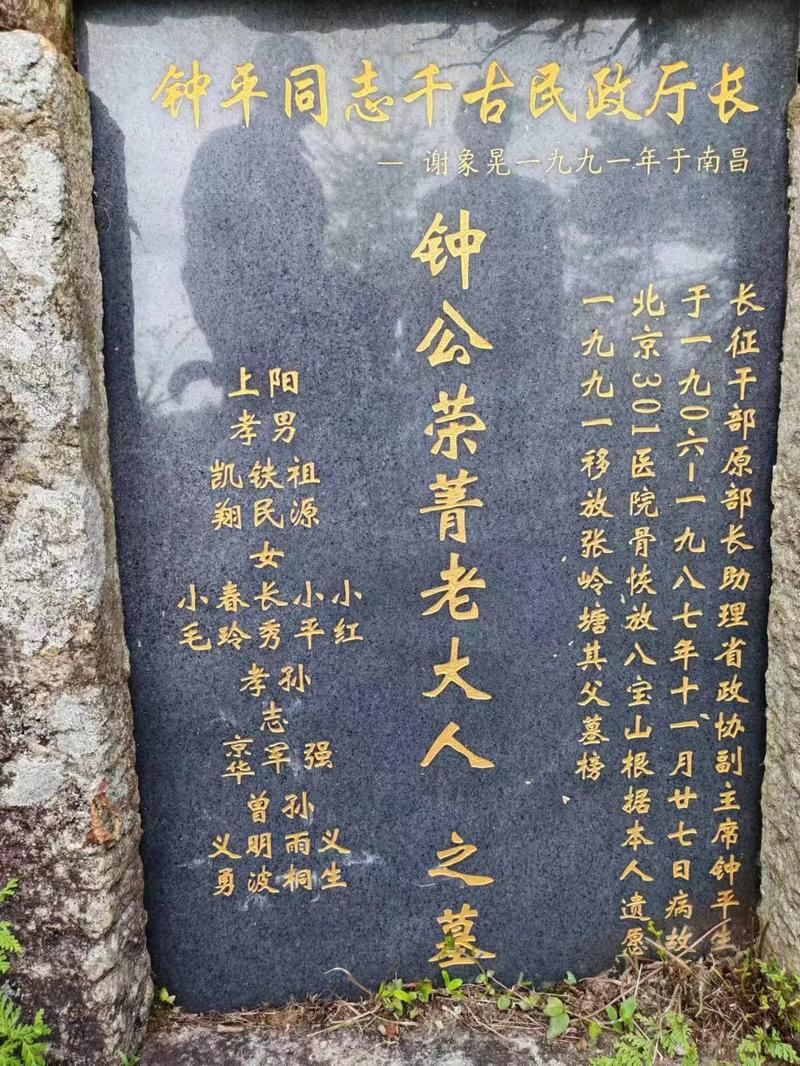 钟平同志千古民政厅长
— 谢象晃一九九一年于南昌
长征干部原部长助理省政协副主席钟平生
于一九〇六一一九八七年十一月廿七日病故
北京301医院骨恢放八宝山根据本人遗愿
一九九一移放张岭塘其父墓榜
钟公荣菁老大人之墓
上阳
孝男
凯翔 铁民 祖源
女
小毛 春玲 长秀 小平 小红
孝孙
京华 志军 强
曾孙
义勇 明波 雨桐 义生